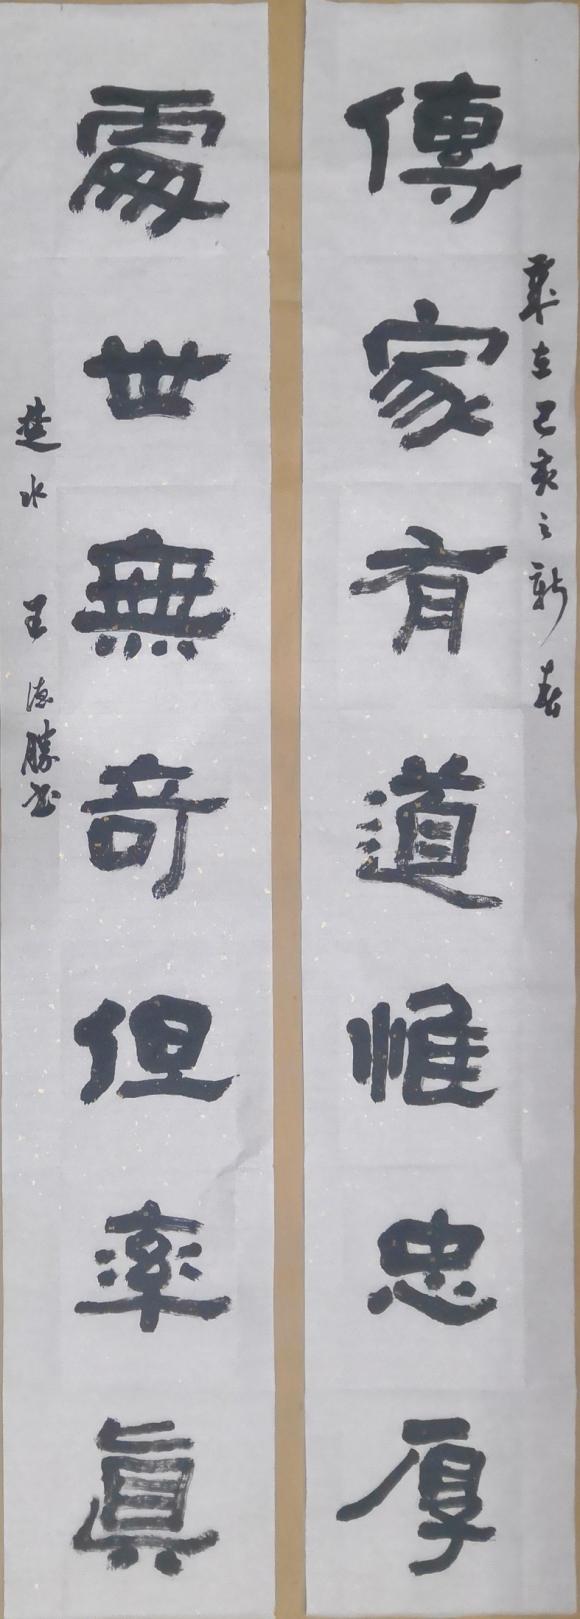 傳家有道惟忠厚
歲在己亥之新春
處世無奇但率真
楚水 王德勝書